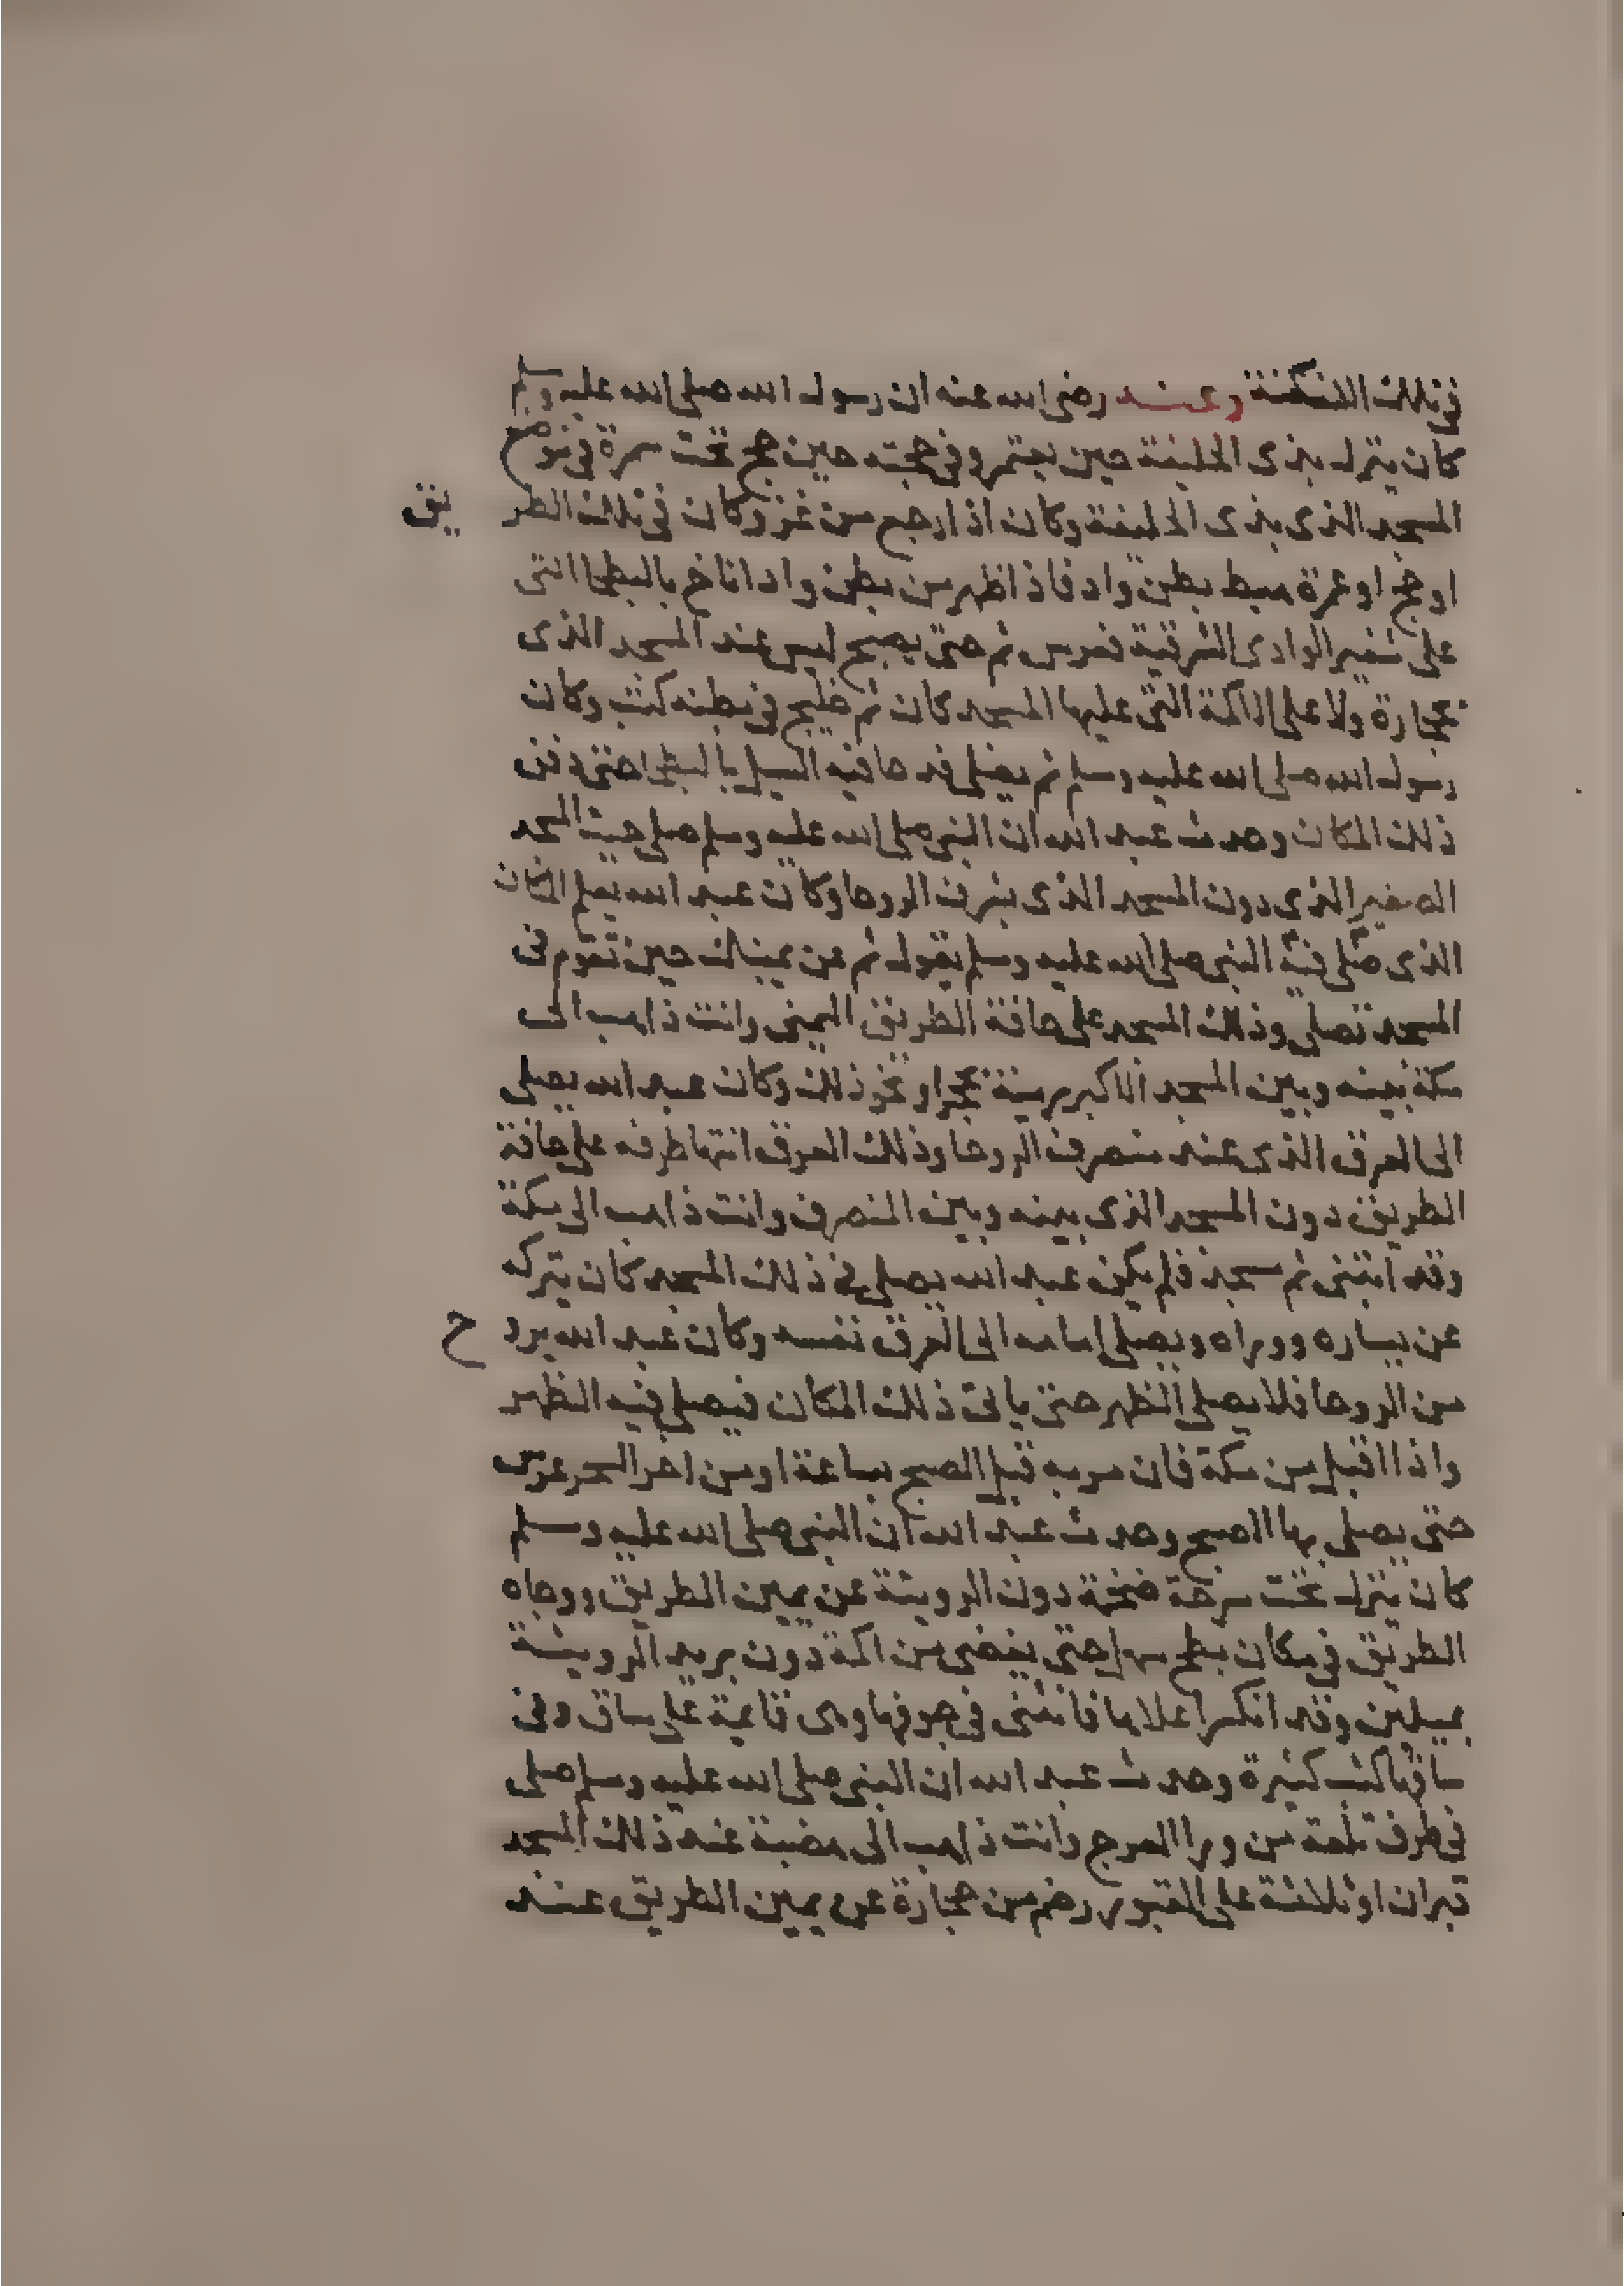 في تلك الامكنة وعنه رضي الله عنه ان رسول الله صلى الله عليه وسلم
كان ينزل بذى الحليفة حين يعتمر وفي حجته حين حج تحت سمرة في موضع
المسجد الذى بذى الحليفة وكان اذا رجع من غزو كان في تلك الطريق
او حج او عمرة هبط بطن واد فاذا ظهر من بطن واد اناخ بالبطحا التى
على شفير الوادى الشرقية فعرس ثم حتى يصبح ليس عند المسجد الذى
بحجارة ولا على الاكمة التى عليها المسجد كان ثم خليج في بطنه كثب وكان
رسول الله صلى الله عليه وسلم ثم يصلى فدحا فيه السيل بالبطحا حتى دفن
ذلك المكان وحدث عبد الله ان النبى صلى الله عليه وسلم صلى حيث المسجد
الصغير الذى دون المسجد الذى بشرف الروحا وكان عبد الله يعلم المكان
الذى صلى فيه النبى صلى الله عليه وسلم يقول ثم عن يمينك حين تقوم في
المسجد تصلى وذلك المسجد على حافة الطريق اليمنى وانت ذاهب الى
مكة بينه وبين المسجد الاكبر رمية بحجر او نحو ذلك وكان عبد الله يصلى
الى العرق الذى عند منصرف الروحا وذلك العرق انتها طرفه على حافة
الطريق دون المسجد الذى بينه وبين المنصرف وانت ذاهب الى مكة
وقد ابتنى ثم مسجد فلم يكن عبد الله يصلى في ذلك المسجد كان يتركه
عن يساره ووراه ويصلى امامه الى العرق نفسه وكان عبد الله يروح
من الروحا فلا يصلى الظهر حتى ياتى ذلك المكان فيصلى فيه الظهر
واذا اقبل من مكة فان مر به قبل الصبح بساعة او من اخر السحر عرس
حتى يصلى بها الصبح وحدث عبد الله ان النبى صلى الله عليه وسلم
كان ينزل تحت سرحة ضخمة دون الرويثة عن يمين الطريق ووجاه
الطريق في مكان بطح سهل حتى يفضى من اكمة دون بريد الرويثة
بميلين وقد انكسر اعلاها فانثنى في جوفها وهى قائمة على ساق وفي
ساقها كثب كثيرة وحدث عبد الله ان النبى صلى الله عليه وسلم صلى
في طرف تلعة من ورا العرج وانت ذاهب الى هضبة عند ذلك المسجد
قبران او ثلاثة على القبور رضم من حجارة عن يمين الطريق عند